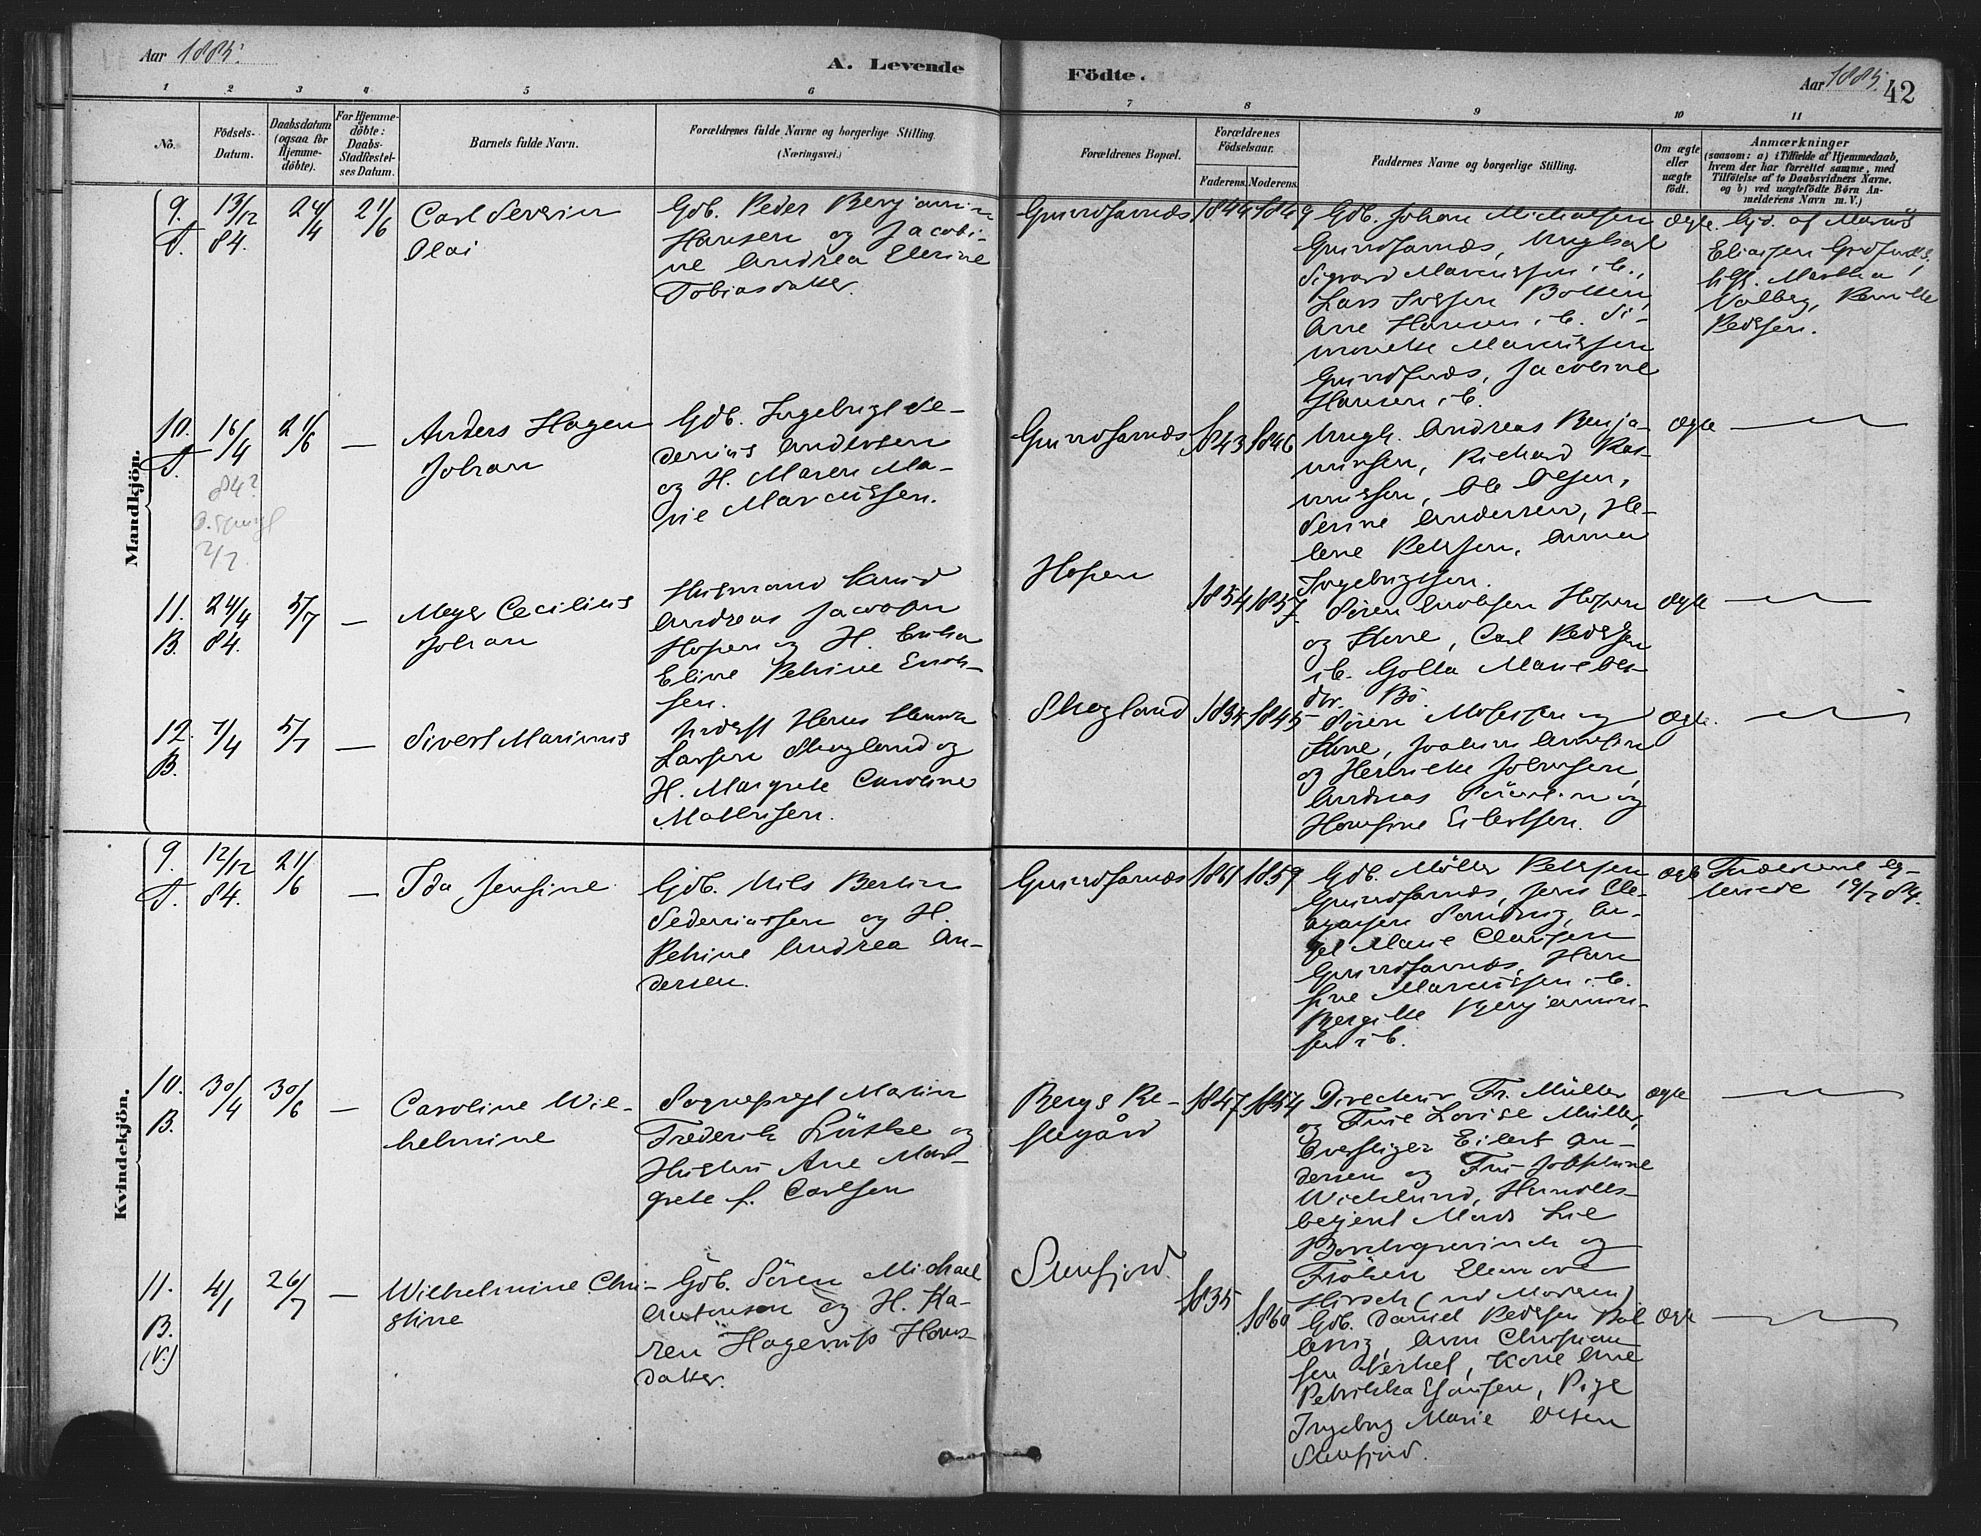 Aar 1885.
A. Levende Födte.
Aar 1885. 42
1 2 3 4 5 6 7 8 9 10 11
No.
Födsels-Datum.
Daabsdatum (ogsaa for Hjemme-döbte).
For Hjemme-döbte: Daabs-Stadfæstel-ses Datum.
Barnets fulde Navn.
Forældrenes fulde Navne og borgerlige Stilling.
(Næringsvei.)
Forældrenes Bopæl.
Forældrenes Födselsaar.
Faderens. Moderens.
Faddernes Navne og borgerlige Stilling.
Om ægte eller uægte födt.
Anmærkninger
(saasom: a) i Tilfælde af Hjemmedaab,
hvem der har forrettet samme, med
Tilföielse af to Daabsvidners Navne.
og b) ved uægtefödte Börn An-
melderens Navn m. V.)
Mandkjön.
9. 13/12 84. 24/4 21/6
Carl Severin
Olai
Gdb. Peder Benjamin
Hansen og Jacobi-
ne Andrea Elerine
Tobiasdatter.
Grundfarnæs 1844 1849
Gdb. Johan Michalsen
Grundfarnæs, Ungkarl
Sigvard Marcussen i b.,
Lars Iversen Botten,
Ane Hansen i b. Si-
monette Marcussen
Grundfnæs, Jacobine
Hansen i b.
ægte.
Gjd. af Marius
Eliassen Grdfnæs,
Martha
Valberg, Pernille
Pedersen.
10. 16/4 21/6 —
84?
2/7
Anders Hagen
Johan
Gdb. Ingebrigt Se-
verius Andersen
og H. Maren Ma-
rie Marcussen.
Grundfarnæs 1843 1846
Ungk. Andreas Benja-
minsen, Richard Ras-
mussen, Ole Olsen,
Serine Andersen, He-
lene Petersen, Anna
Ingebrigtsen.
ægte —
11. B. 24/4 84. 5/7 —
Meyer Cecilius
Johan
Husmand Knud
Andreas Jacobsen
Hopen og H. Erika
Eline Petrine Enok-
sen.
Hopen 1854 1857
Sören Enoksen Hopen
og Kone, Carl Pedersen
i b. Golla Marie Ols-
dtr. Bö.
ægte —
12. B. 7/4 5/7 —
Sivert Marinus
Inderst Hans Henrik
Larsen Skogland og
H. Margrete Caroline
Mathisen.
Skogland 1835 1845
Sören Mosessen og
Kone, Joakim Arnesen
og Henriette Johnsen,
Andreas Sörensen og
Hansine Eilertsen.
ægte. —
Kvindekjön.
9. 12/12 84. 21/6 —
Ida Jensine
Gdb. Nils Bertin
Sederiussen og H.
Petrine Andrea An-
dersen.
Grundfarnæs 1861 1859
Gdb. Möller Petersen
Grundfarnæs, Jens Ele-
azarsen Sandvig, An-
gel Marie Clausen
Grundfarnæs, Han
sine Marcussen i b.
Bergitte Benjamin-
sen i b.
ægte
Forældrene eg-
teviede 19/7 84.
10. B. 30/4 30/6 —
Caroline Wil-
helmine
Sogneprest Martin
Frederik Lütke og
Hustru Ane Mar-
grete f. Carlsen
Bergs Præ-
stegård
1847 1854
Directeur Fr. Müller
og Frue Lovise Müller,
Overstiger Eilert An-
dersen og Fru Josephine
Wicklund, Handels-
betjent Mads Lie
Borchgrevinck og
Fröken Eleonore
Hirsch (ved Moderen)
ægte —
11. B. (V.) 4/1 26/7 —
Wilhelmine Chri-
stine
Gdb. Sören Michael
Antonsen og H. Ka-
ren Hagerup Hans-
datter.
Steinfjord. 1835 1860
Gdb. Daniel Pedersen
Arn Christian-
sen Kone Ane
Petrikka Hansen, Pige
Ingeborg Marie Olsen
Steinfjord.
ægte —